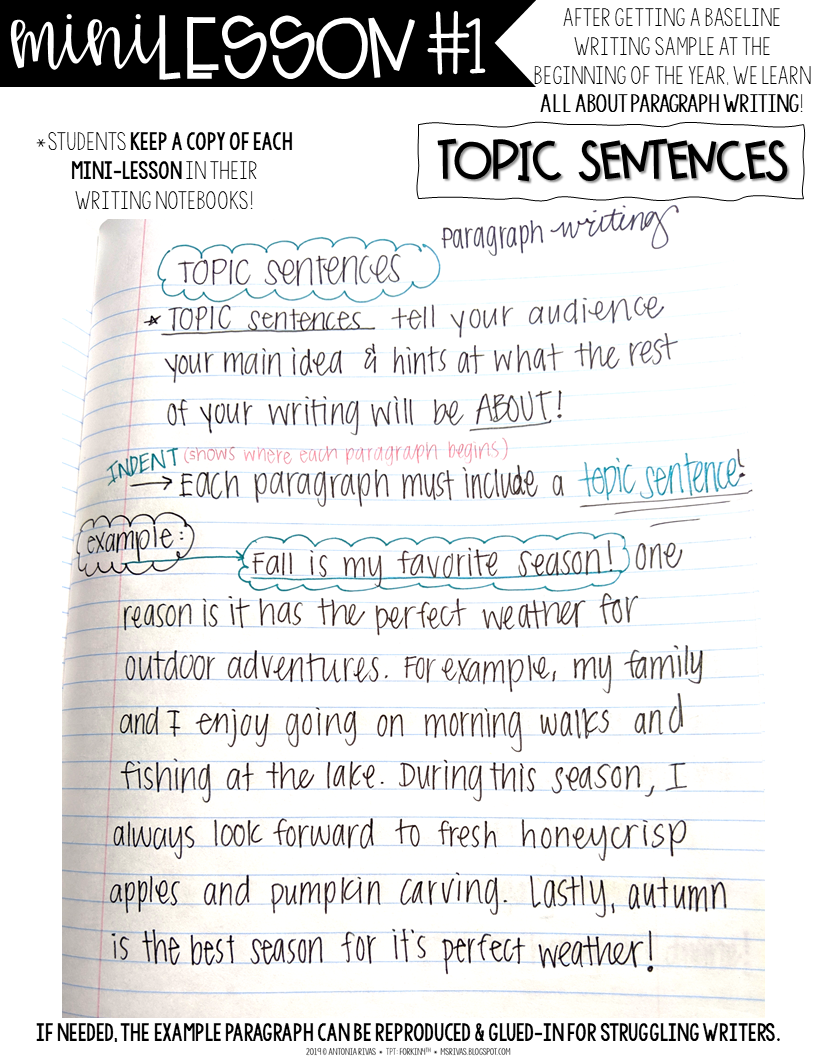 mini LESSON #1
AFTER GETTING A BASELINE
WRITING SAMPLE AT THE
BEGINNING OF THE YEAR, WE LEARN
ALL ABOUT PARAGRAPH WRITING!
*STUDENTS KEEP A COPY OF EACH
MINI-LESSON IN THEIR
WRITING NOTEBOOKS!
TOPIC SENTENCES
Paragraph writing
TOPIC sentences
* TOPIC sentences tell your audience
your main idea & hints at what the rest
of your writing will be ABOUT!
INDENT (shows where each paragraph begins)
→ Each paragraph must include a topic sentence!
example:
Fall is my favorite season! One
reason is it has the perfect weather for
outdoor adventures. For example, my family
and I enjoy going on morning walks and
fishing at the lake. During this season, I
always look forward to fresh honeycrisp
apples and pumpkin carving. Lastly, autumn
is the best season for it's perfect weather!
IF NEEDED, THE EXAMPLE PARAGRAPH CAN BE REPRODUCED & GLUED-IN FOR STRUGGLING WRITERS.
2019 © ANTONIA RIVAS • TPT: FORKIN4TH • MSRIVAS.BLOGSPOT.COM